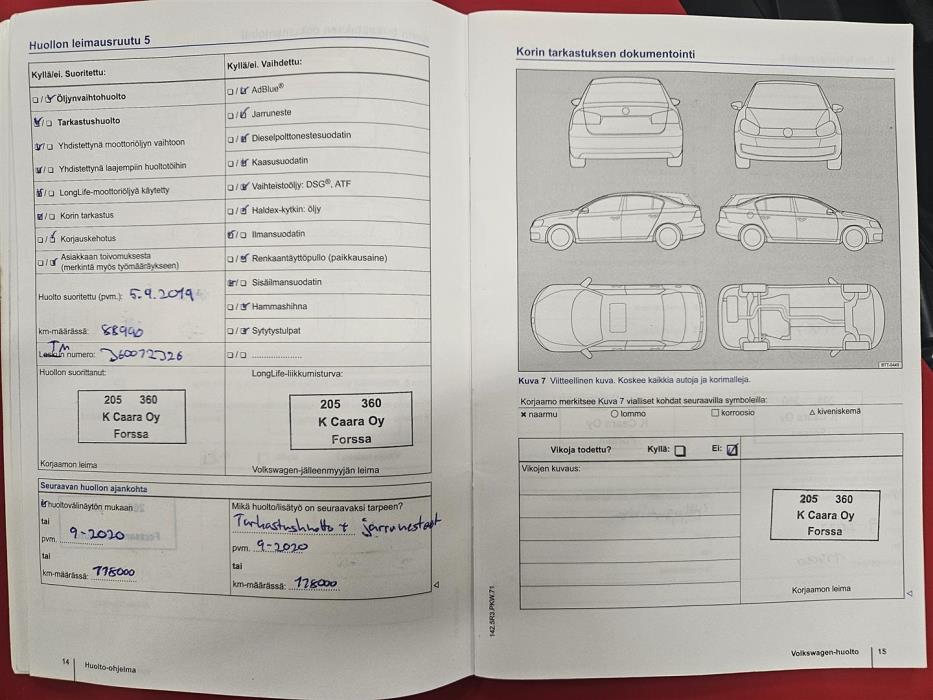 Huollon leimausruutu 5
Kyllä/ei. Suoritettu:
☐ / ☑ Öljynvaihtohuolto
☑ / ☐ Tarkastushuolto
☑ / ☐ Yhdistettynä moottoriöljyn vaihtoon
☑ / ☐ Yhdistettynä laajempiin huoltotöihin
☑ / ☐ LongLife-moottoriöljyä käytetty
☑ / ☐ Korin tarkastus
☐ / ☑ Korjauskehotus
☐ / ☑ Asiakkaan toivomuksesta
(merkintä myös työmääräykseen)
Huolto suoritettu (pvm.): 5.9.2019
km-määrässä: 88990
TM
Laskun numero:
Huollon suorittanut:
205 360
K Caara Oy
Forssa
Korjaamon leima
Kyllä/ei. Vaihdettu:
☐ / ☑ AdBlue®
☐ / ☑ Jarruneste
☐ / ☑ Dieselpolttonestesuodatin
☐ / ☑ Kaasusuodatin
☐ / ☑ Vaihteistoöljy: DSG®, ATF
☐ / ☑ Haldex-kytkin: öljy
☑ / ☐ Ilmansuodatin
☐ / ☑ Renkaantäyttöpullo (paikkausaine)
☑ / ☐ Sisäilmansuodatin
☐ / ☑ Hammashihna
☐ / ☑ Sytytystulpat
☐ / ☐ ....................
LongLife-liikkumisturva:
205 360
K Caara Oy
Forssa
Volkswagen-jälleenmyyjän leima
Seuraavan huollon ajankohta
☑ huoltovälinäytön mukaan
tai
pvm. 9-2020
tai
km-määrässä: 118000
Mikä huolto/lisätyö on seuraavaksi tarpeen?
Tarkastushuolto + jarrunesteet
pvm. 9-2020
tai
km-määrässä: 118000
14 Huolto-ohjelma
Korin tarkastuksen dokumentointi
B7T-0449
Kuva 7 Viitteellinen kuva. Koskee kaikkia autoja ja korimalleja.
Korjaamo merkitsee Kuva 7 vialliset kohdat seuraavilla symboleilla:
✕ naarmu ○ lommo ☐ korroosio △ kiveniskemä
Vikoja todettu? Kyllä: ☐ Ei: ☑
Vikojen kuvaus:
205 360
K Caara Oy
Forssa
Korjaamon leima
142.5R3.PKW.71
Volkswagen-huolto 15